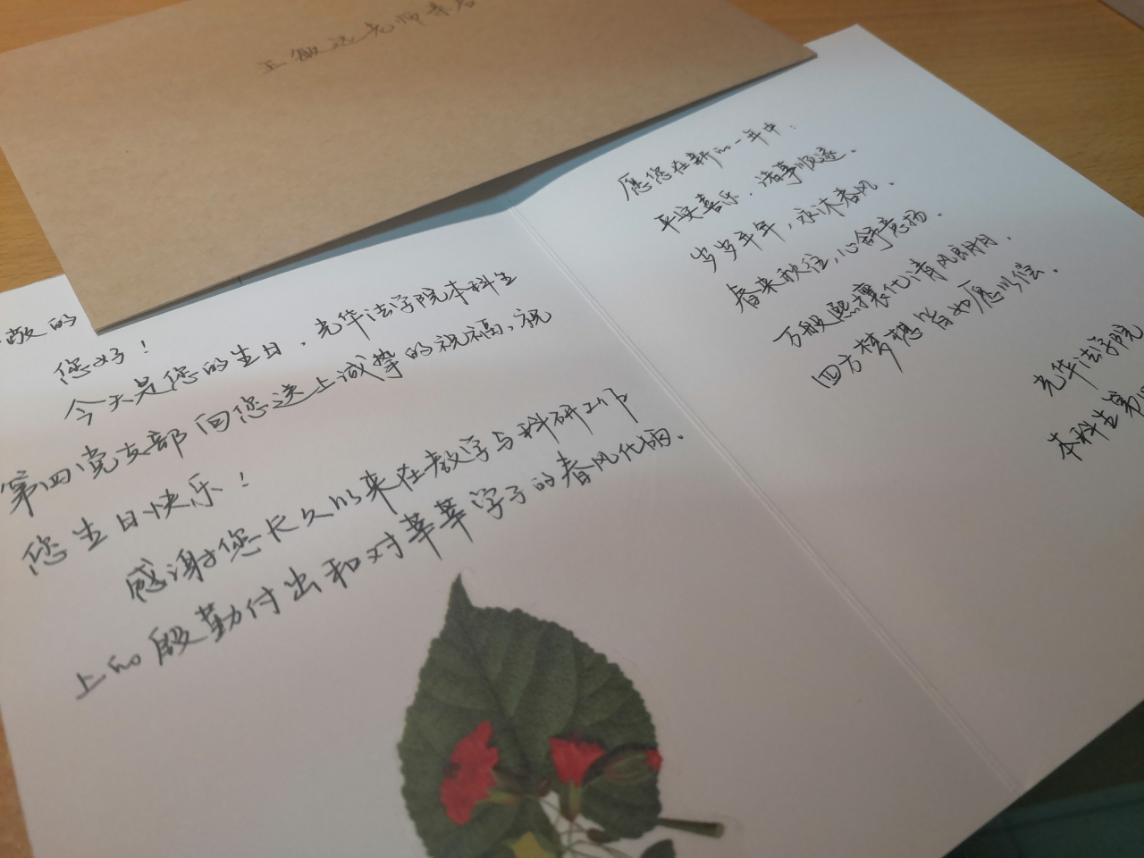 王敏远老师寿启
敬的
您好!
今天是您的生日,光华法学院本科生
第四党支部向您送上诚挚的祝福,祝
您生日快乐!
感谢您长久以来在教学与科研工作
上的殷勤付出和对莘莘学子的春风化雨。
愿您在新的一年中:
平安喜乐,诸事顺遂。
岁岁年年,永沐春风。
春来秋往,心舒意扬。
万般熙攘化清风朗月,
四方梦想皆如愿以偿。
光华法学院
本科生第四